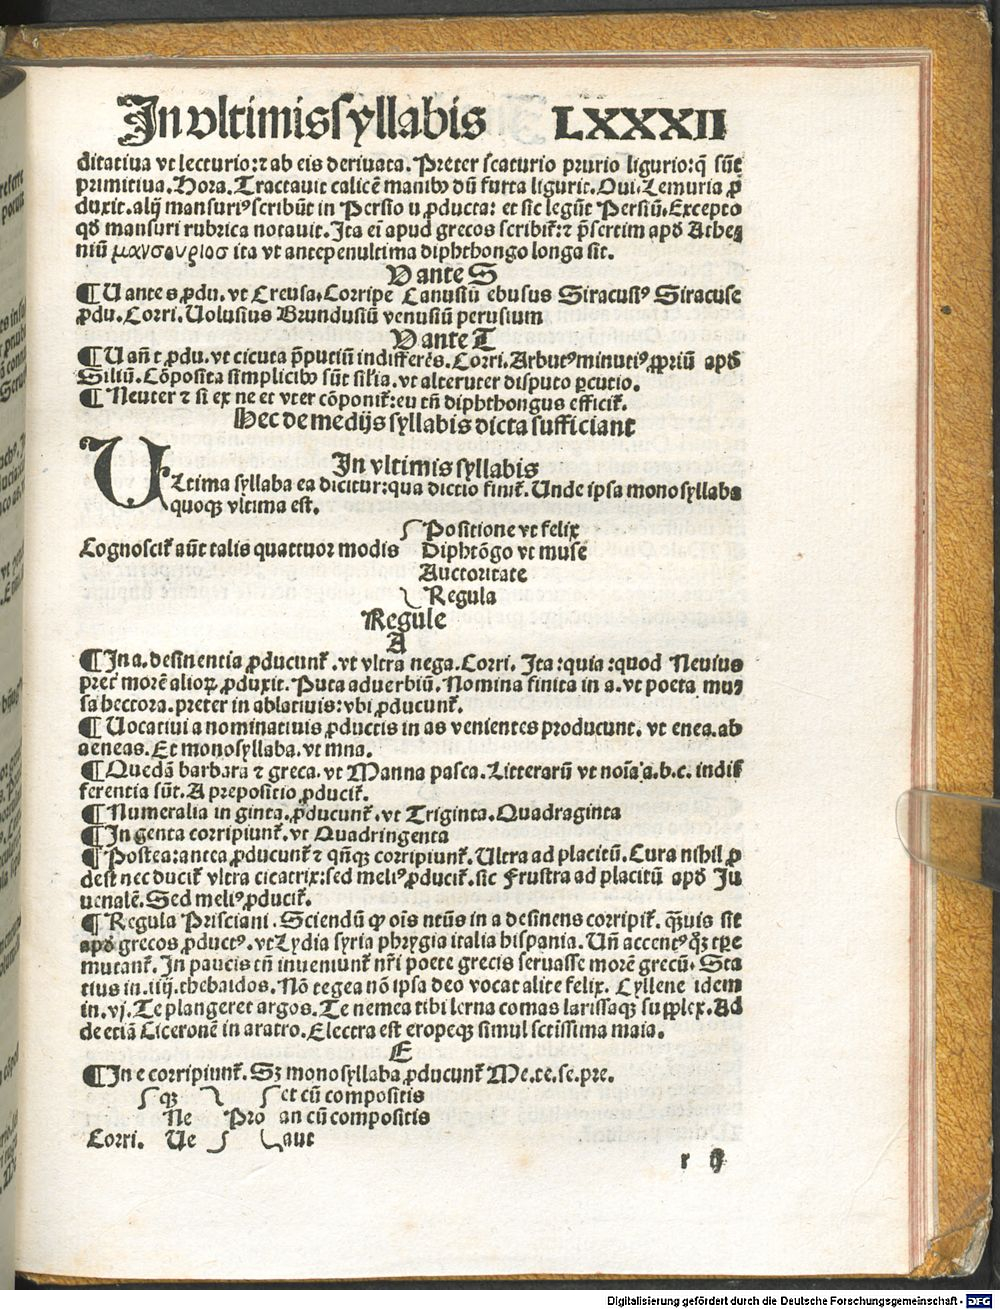 In vltimis syllabis LXXXII
ditatiua vt lecturio:⁊ ab eis deriuata. Preter scaturio prurio ligurio:q̄ sūt
primitiua. Hora. Tractauit calicē manibꝰ dū furta ligurit. Oui. Lemuria ꝓ
duxit. alij mansuriꝰ scribūt in Persio u ꝓducta: et sic legūt Persiū. Excepto
qđ mansuri rubrica notauit. Ita em̄ apud grecos scribit̄: ⁊ p̄sertim apđ Athe⸗
niū μανσουριοσ ita vt antepenultima diphthongo longa sit.
V ante S
¶ U ante s ꝓdu. vt Creusa. Corripe Canusiū ebusus Siracusiꝰ Siracuse
ꝓdu. Corri. Uolusius Brundusiū venusiū perusium
V ante T
¶ U an̄ t ꝓdu. vt cicuta p̄putiū indifferēs. Corri. Arbutꝰ minutiꝰ ꝓpriū apđ
Siliū. Cōposita simplicibꝰ sūt sil'ia. vt alteruter disputo ꝑcutio.
¶ Neuter ⁊ si ex ne et vter cōponit̄: eu tn̄ diphthongus efficit̄.
Hec de medijs syllabis dicta sufficiant
In vltimis syllabis
ULtima syllaba ea dicitur: qua dictio finit̄. Unde ipsa monosyllaba
quoqꝫ vltima est.
Positione vt felix
Cognoscit̄ aūt talis quattuor modis Diphtōgo vt muse
Auctoritate
Regula
Regule
A
¶ In a. desinentia ꝓducunt̄. vt vltra nega. Corri. Ita: quia: quod Neuius
preter morē alioꝝ ꝓduxit. Puta aduerbiū. Nomina finita in a. vt poeta mu⸗
sa hectora. preter in ablatiuis: vbi ꝓducunt̄.
¶ Uocatiui a nominatiuis ꝓductis in as venientes producunt. vt enea. ab
aeneas. Et monosyllaba. vt mna.
¶ Quedā barbara ⁊ greca. vt Manna pasca. Litterarū vt noīa a.b.c. indif
ferentia sūt. A prepositio ꝓducit̄.
¶ Numeralia in ginta. ꝓducunt̄. vt Triginta. Quadraginta
¶ In genta corripiunt̄. vt Quadringenta
¶ Postea: antea ꝓducunt̄ ⁊ qn̄qꝫ corripiunt̄. Ultra ad placitū. Cura nihil ꝓ
dest nec ducit̄ vltra cicatrix: sed meliꝰ ꝓducit̄. sic Frustra ad placitū apđ Ju
uenalē. Sed meliꝰ ꝓducit̄.
¶ Regula Prisciani. Sciendū ꝙ oīs ntūs in a desinens corripit̄. qꝫuis sit
apđ grecos ꝓductꝰ. vt Lydia syria phrygia italia hispania. Un̄ accentꝰ qꝫ tp̄e
mutant̄. In paucis tn̄ inueniunt̄ nr̄i poete grecis seruasse morē grecū. Sta
tius in .iiij. thebaidos. Nō tegea nō ipsa deo vocat alite felix. Cyllene idem
in .vj. Te plangeret argos. Te nemea tibi lerna comas larissaqꝫ supplex. Ad
de etiā Ciceronē in aratro. Electra est eropeqꝫ simul sctīssima maia.
E
¶ In e corripiunt̄. Sꝫ monosyllaba ꝓducunt̄ Me. te. se. pre.
qꝫ et cū compositis
Ne Pro an cū compositis
Corri. Ue aut
r ij
Digitalisierung gefördert durch die Deutsche Forschungsgemeinschaft - DFG